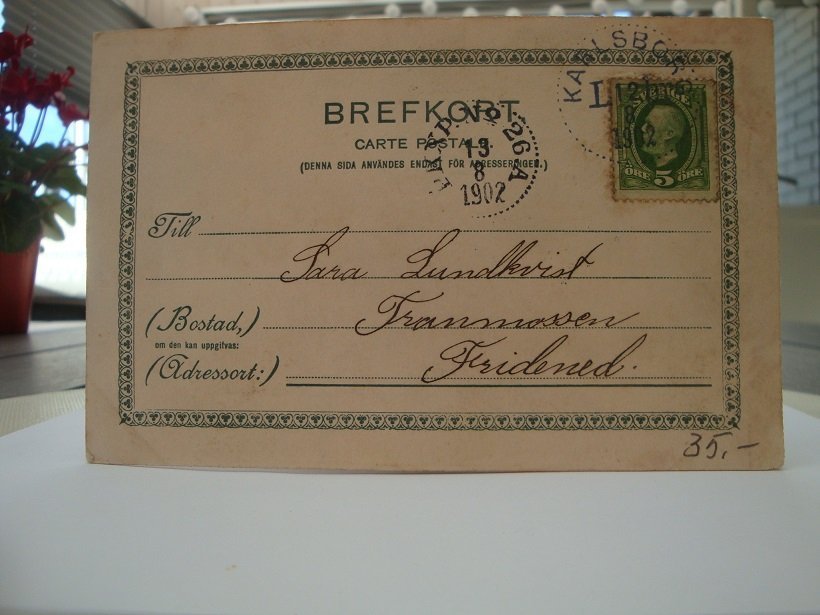 BREFKORT.
CARTE POSTALE.
(DENNA SIDA ANVÄNDES ENDAST FÖR ADRESSERINGEN.)
KARLSBORG
L
12
8
1902
SVERIGE
ÖRE 5 ÖRE
PKXP. Nº 26 A
13
8
1902
Till
Sara Lundkvist
(Bostad,) Tranmossen
om den kan uppgifvas:
(Adressort:) Fridened.
35,-